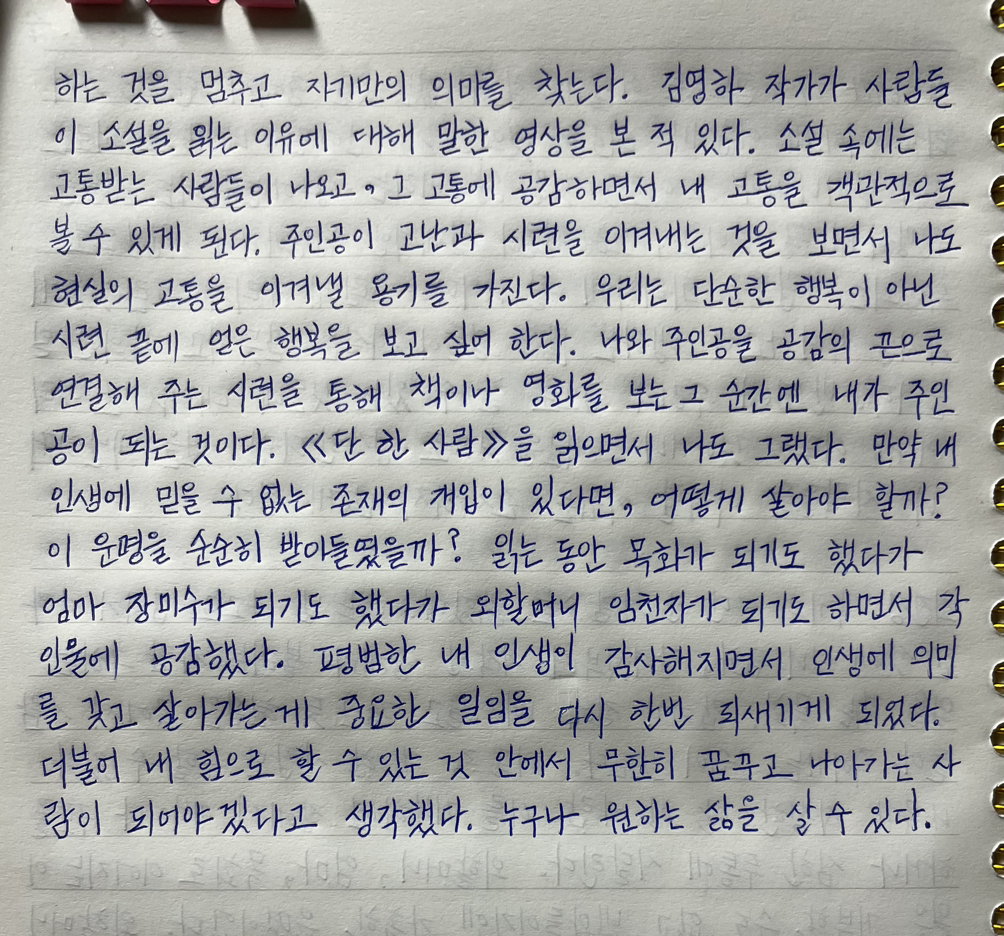 하는 것을 멈추고 자기만의 의미를 찾는다. 김영하 작가가 사람들
이 소설을 읽는 이유에 대해 말한 영상을 본 적 있다. 소설 속에는
고통받는 사람들이 나오고, 그 고통에 공감하면서 내 고통을 객관적으로
볼 수 있게 된다. 주인공이 고난과 시련을 이겨내는 것을 보면서 나도
현실의 고통을 이겨낼 용기를 가진다. 우리는 단순한 행복이 아닌
시련 끝에 얻은 행복을 보고 싶어 한다. 나와 주인공을 공감의 끈으로
연결해 주는 시련을 통해 책이나 영화를 보는 그 순간엔 내가 주인
공이 되는 것이다. 《단 한 사람》을 읽으면서 나도 그랬다. 만약 내
인생에 믿을 수 없는 존재의 개입이 있다면, 어떻게 살아야 할까?
이 운명을 순순히 받아들였을까? 읽는 동안 목화가 되기도 했다가
엄마 장미수가 되기도 했다가 외할머니 임천자가 되기도 하면서 각
인물에 공감했다. 평범한 내 인생이 감사해지면서 인생에 의미
를 갖고 살아가는 게 중요한 일임을 다시 한번 되새기게 되었다.
더불어 내 힘으로 할 수 있는 것 안에서 무한히 꿈꾸고 나아가는 사
람이 되어야겠다고 생각했다. 누구나 원하는 삶을 살 수 있다.